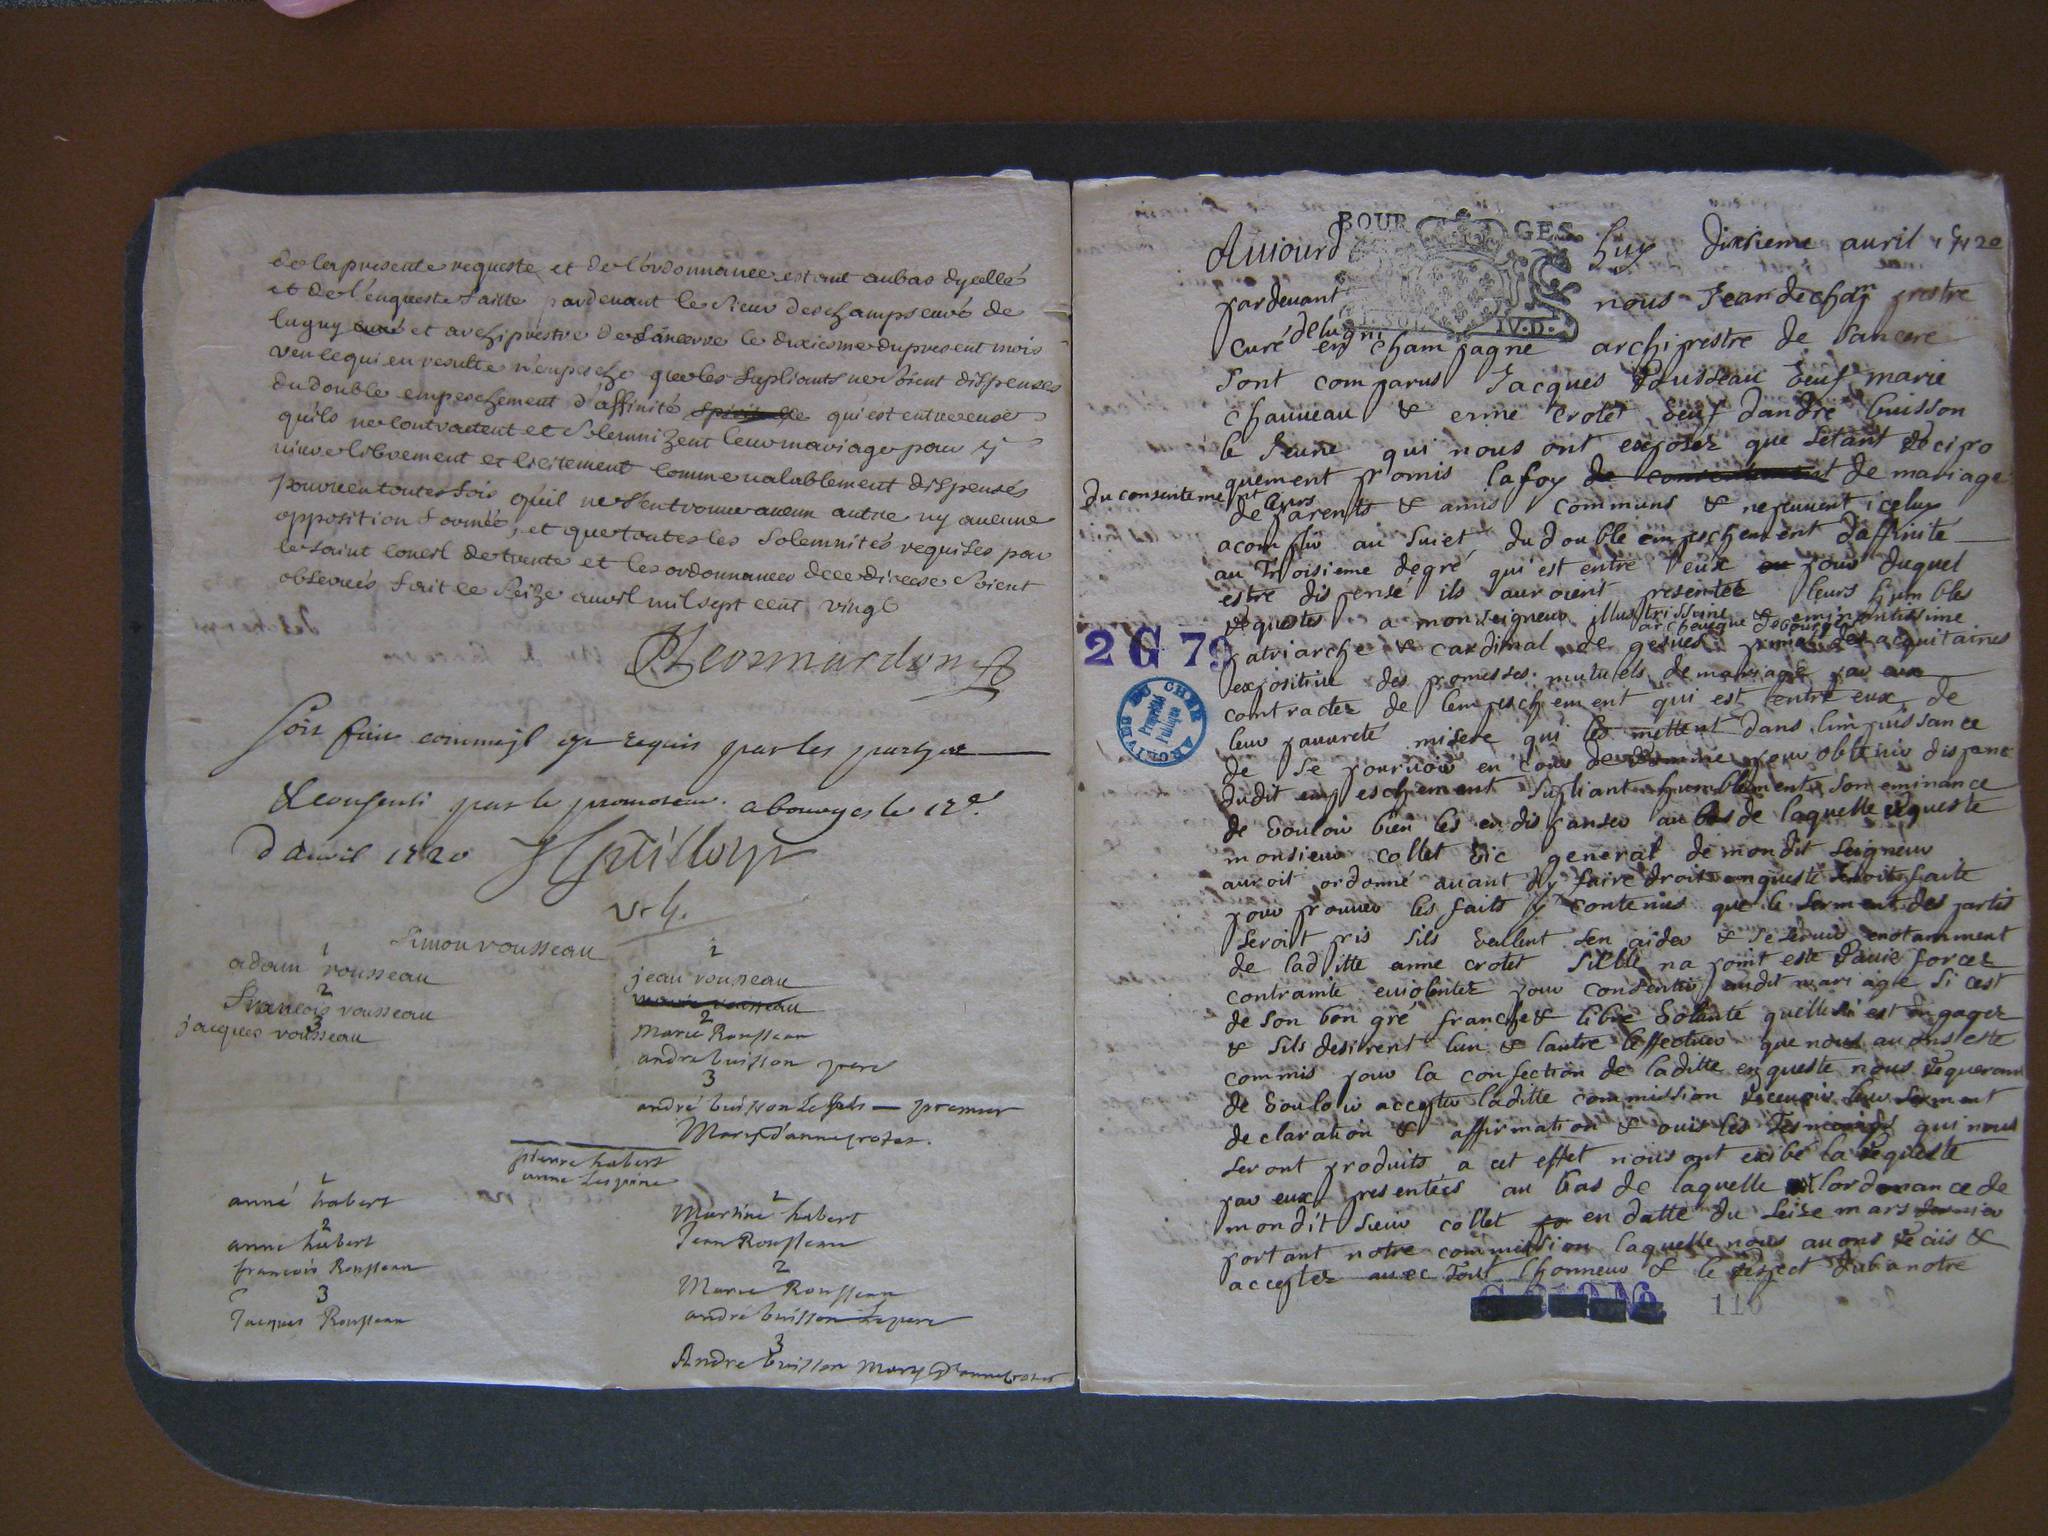 de la presente requeste et de l'ordonnance estant au bas dycelle
et de l'enqueste faitte pardevant le sieur deschamps curé de
lugny curé et archiprestre de sancerre le dixiesme du present mois
veu ce qui en resulte n'empesche que les supliants ne soient dispenses
du double empeschement d'affinité qui est entre eux
qu'ils ne contractent et solemnizent leur mariage pour y
vivre librement et licitement comme valablement dispensés
pourveu toutes fois qu'il ne s'en trouve aucun autre ny aucune
opposition formée, et que toutes les solemnités requises par
le saint concil de trente et les ordonnances de ce diocese soient
observées fait ce seize avril mil sept cent vingt
Leonnardon
soit fait comme il est requis par les parties
& consenti par le promoteur. a bourges le 17e.
d avril 1720
simon rousseau
1
adam rousseau
2
francois rousseau
3
jacques rousseau
1
jean rousseau
marie rousseau
2
marie Rousseau
andre buisson pere
3
andré buisson le fils — premier
mary d'anne crotet.
pierre habert
anne lespine
1
anne habert
2
anne habert
francois Rousseau
3
Jacques Rousseau
2
Martine habert
Jean Rousseau
2
Marie Rousseau
andré buisson le pere
3
André buisson mary d'anne crotet
BOURGES
Aujourd huy dixsieme auril 1720
pardeuant nous Jean dechan prestre
curé de lugni en champagne archiprestre de sancere
sont comparus Jacques Rousseau veuf marie
chauueau & enne crotet veuf dandré buisson
le Jeune qui nous ont exposez que setant recipo
quement promis la foy de consentement de mariage
du consentement de leurs parents & amis communs & ne peuuent icelux
acomplir au suiet du double empeschement daffinité
au troisieme degré qui est entre eux ou pour duquel
estre dispensé ils auroient presentez leurs humbles
requestes a monseigneur illustrissime & eminentissime
archeueque de bourges
patriarche & cardinal de gesures primat des acquitaines
expositiue des promesses mutuels de mariage par eux
contractez de lempeschement qui est entre eux de
leur pauureté misere qui les mettent dans limpuissance
de se pouruoir en cour de Romme pour obtenir dispanc
dudit empeschement supliant humblement son eminance
de vouloir bien les en dispanser au bas de laquelle requeste
monsieur collet vic general de mondit seigneur
auroit ordonné auant dy faire droit enqueste seroit faite
pour prouuer les faits y contenus que le serment des partis
seroit pris sils veullent sen aider & se seruir enotamment
de laditte anne crotet sille na point este rauie forcez
contrainte euiolentez pour consentir audit mariage si cest
de son bon gré franche & libre volonté quelle si est engagez
& sils desirrent lun & lautre leffectuer que nous auons este
commis pour la confection de laditte enqueste nous requerant
de vouloir accepter laditte commission receuoir leur serment
declaration & affirmation & ouir les tesmoings qui nous
seront produits a cet effet nous ont exibé la requeste
par eux presentées au bas de laquelle est lordonance de
mondit sieur collet en datte du seize mars dernier
portant notre commission laquelle nous auons recüs &
acceptez auec tout lhonneur & le respect dub a notre
2 G 79
ARCHIVES DU CHER
Propriété Publique
110